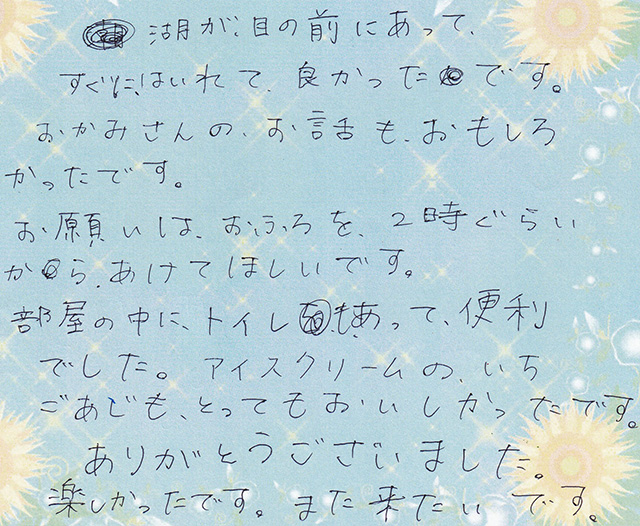 湖が、目の前にあって、
すぐに、はいれて、良かったです。
おかみさんの、お話も、おもしろ
かったです。
お願いは、おふろを、2時ぐらい
から、あけてほしいです。
部屋の中に、トイレも、あって、便利
でした。アイスクリームの、いち
ごあじも、とってもおいしかったです。
ありがとうございました。
楽しかったです。また来たいです。